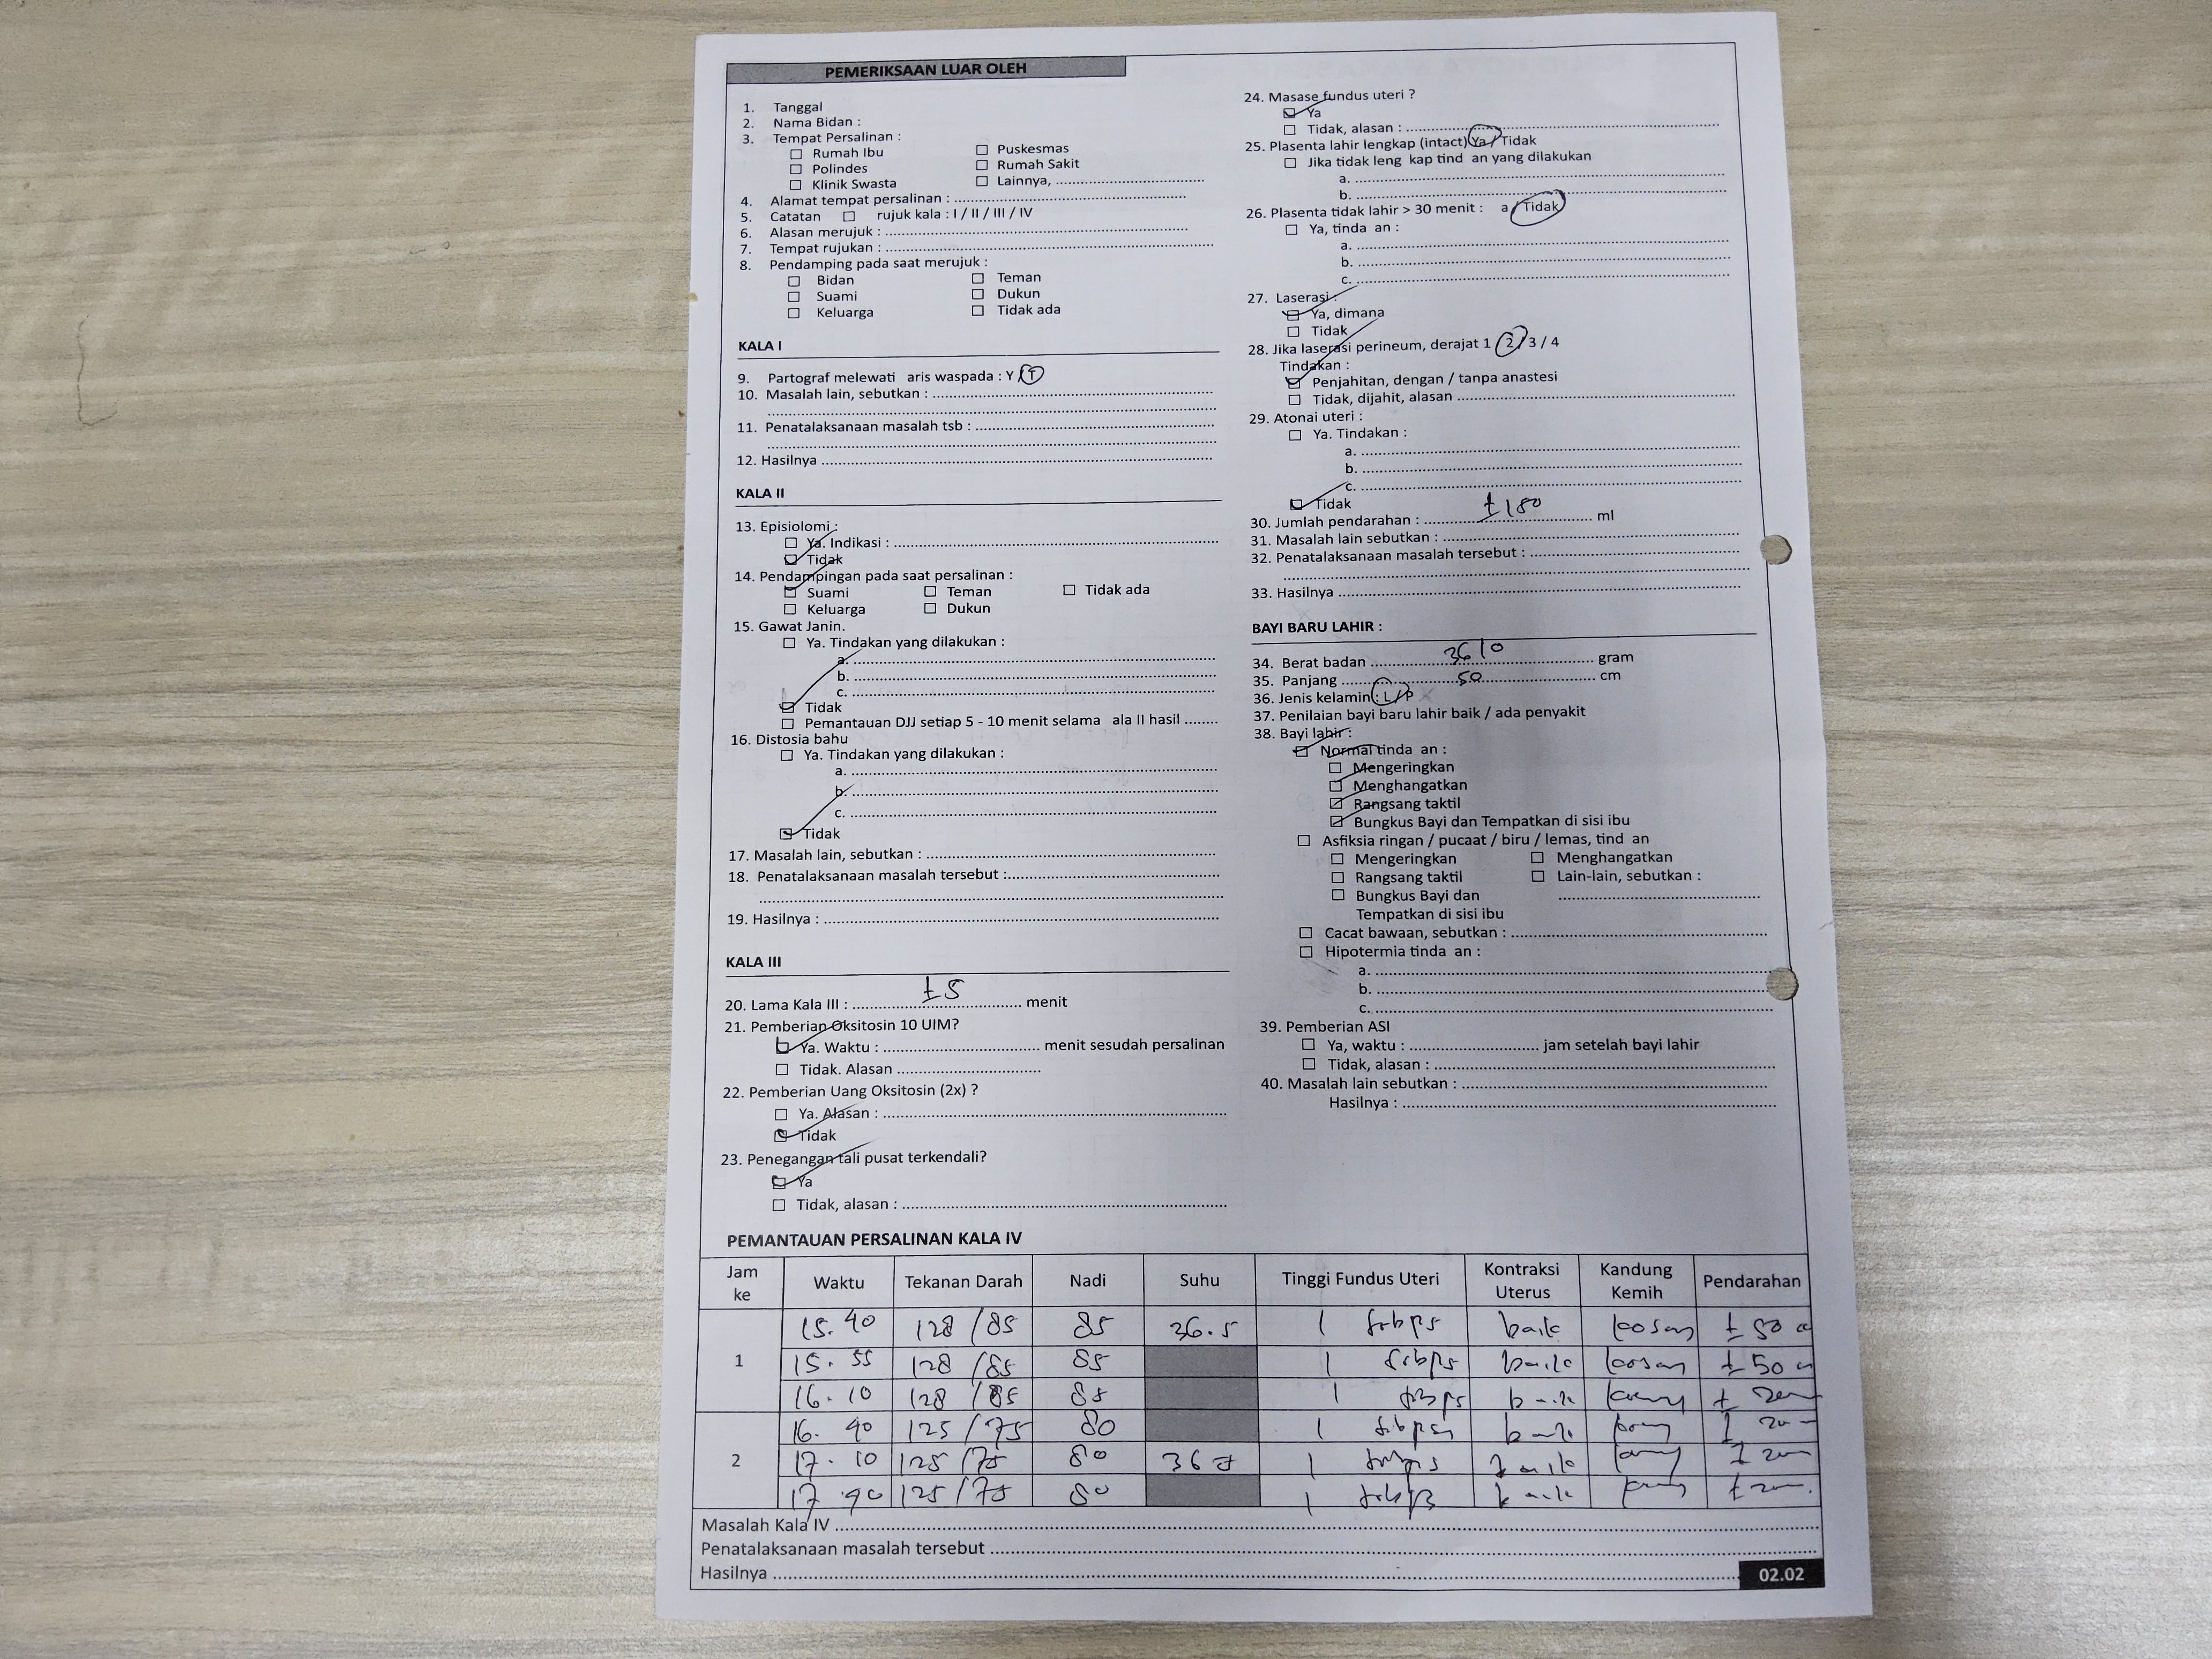 PEMERIKSAAN LUAR OLEH
1. Tanggal
2. Nama Bidan :
3. Tempat Persalinan :
Rumah Ibu Puskesmas
Polindes Rumah Sakit
Klinik Swasta Lainnya, ....................
4. Alamat tempat persalinan : ....................
5. Catatan rujuk kala : I / II / III / IV
6. Alasan merujuk : ....................
7. Tempat rujukan : ....................
8. Pendamping pada saat merujuk :
Bidan Teman
Suami Dukun
Keluarga Tidak ada
KALA I
9. Partograf melewati aris waspada : Y / T
10. Masalah lain, sebutkan : ....................
....................
11. Penatalaksanaan masalah tsb : ....................
....................
12. Hasilnya ....................
KALA II
13. Episiolomi :
Ya. Indikasi : ....................
Tidak
14. Pendampingan pada saat persalinan :
Suami Teman Tidak ada
Keluarga Dukun
15. Gawat Janin.
Ya. Tindakan yang dilakukan :
a. ....................
b. ....................
c. ....................
Tidak
Pemantauan DJJ setiap 5 - 10 menit selama ala II hasil ........
16. Distosia bahu
Ya. Tindakan yang dilakukan :
a. ....................
b. ....................
c. ....................
Tidak
17. Masalah lain, sebutkan : ....................
18. Penatalaksanaan masalah tersebut :....................
....................
19. Hasilnya : ....................
KALA III
20. Lama Kala III : ± 5 menit
21. Pemberian Oksitosin 10 UIM?
Ya. Waktu : .................... menit sesudah persalinan
Tidak. Alasan ....................
22. Pemberian Uang Oksitosin (2x) ?
Ya. Alasan : ....................
Tidak
23. Penegangan tali pusat terkendali?
Ya
Tidak, alasan : ....................
24. Masase fundus uteri ?
Ya
Tidak, alasan : ....................
25. Plasenta lahir lengkap (intact) Ya / Tidak
Jika tidak leng kap tind an yang dilakukan
a. ....................
b. ....................
26. Plasenta tidak lahir > 30 menit : a / Tidak
Ya, tinda an :
a. ....................
b. ....................
c. ....................
27. Laserasi :
Ya, dimana
Tidak
28. Jika laserasi perineum, derajat 1 / 2 / 3 / 4
Tindakan :
Penjahitan, dengan / tanpa anastesi
Tidak, dijahit, alasan ....................
29. Atonai uteri :
Ya. Tindakan :
a. ....................
b. ....................
c. ....................
Tidak
30. Jumlah pendarahan : ± 180 ml
31. Masalah lain sebutkan : ....................
32. Penatalaksanaan masalah tersebut : ....................
....................
33. Hasilnya ....................
BAYI BARU LAHIR :
34. Berat badan 3610 gram
35. Panjang 50 cm
36. Jenis kelamin : L / P
37. Penilaian bayi baru lahir baik / ada penyakit
38. Bayi lahir :
Normal tinda an :
Mengeringkan
Menghangatkan
Rangsang taktil
Bungkus Bayi dan Tempatkan di sisi ibu
Asfiksia ringan / pucaat / biru / lemas, tind an
Mengeringkan Menghangatkan
Rangsang taktil Lain-lain, sebutkan :
Bungkus Bayi dan ....................
Tempatkan di sisi ibu
Cacat bawaan, sebutkan : ....................
Hipotermia tinda an :
a. ....................
b. ....................
c. ....................
39. Pemberian ASI
Ya, waktu : .................... jam setelah bayi lahir
Tidak, alasan : ....................
40. Masalah lain sebutkan : ....................
Hasilnya : ....................
PEMANTAUAN PERSALINAN KALA IV
Jam ke Waktu Tekanan Darah Nadi Suhu Tinggi Fundus Uteri Kontraksi Uterus Kandung Kemih Pendarahan
1 15.40 128/85 85 36.5 1 baik kosong ± 50
15.55 128/85 85 1 baik kosong ± 50
16.10 128/85 85 1 baik
2 16.40 125/75 80 1 baik
17.10 125/75 80 1 baik
17.40 125/75 80 1 baik
Masalah Kala IV ....................
Penatalaksanaan masalah tersebut ....................
Hasilnya ....................
02.02